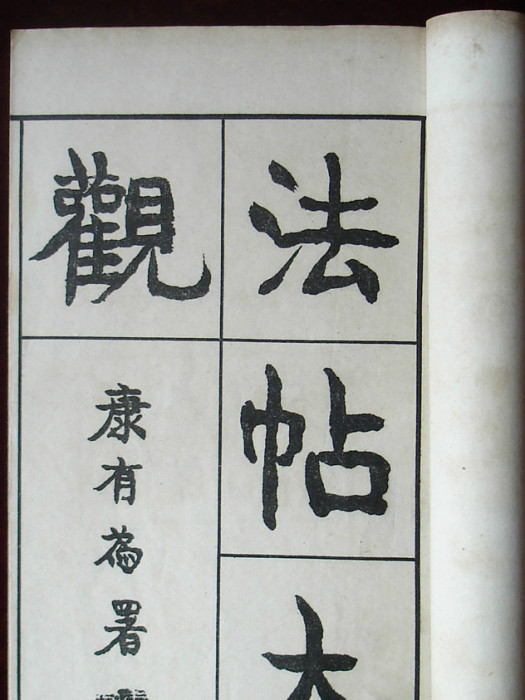 法帖
觀
康有為署